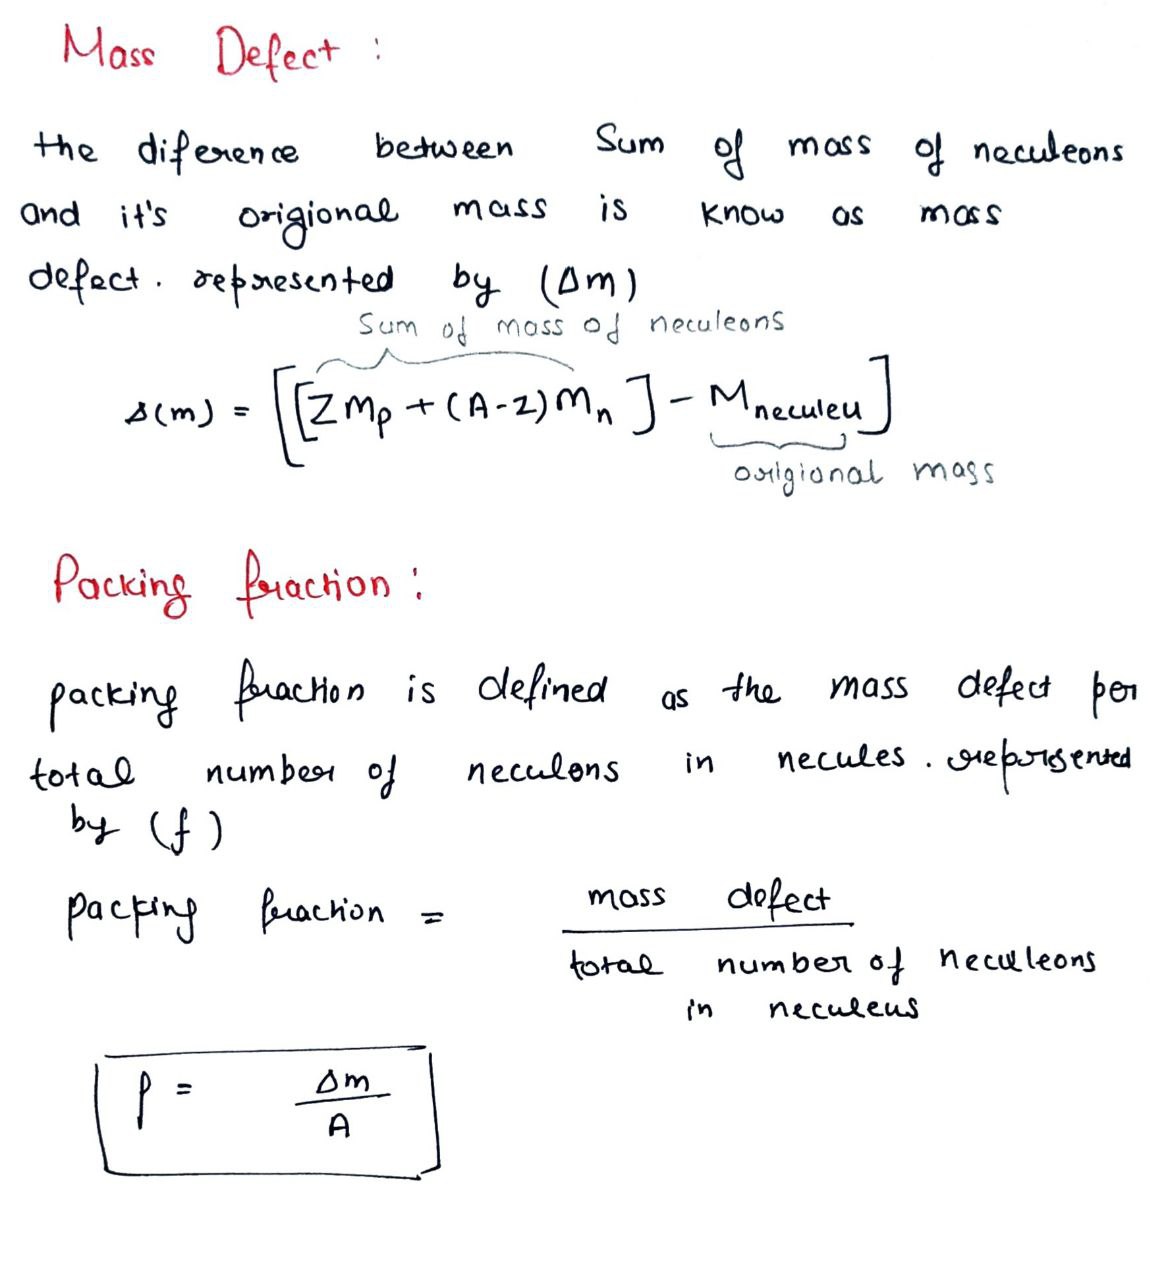 Mass Defect :
the diference between Sum of mass of neculeons
and it's origional mass is know as mass
defect. represented by (Δm)
Sum of mass of neculeons
Δ(m) = [[ZMp + (A-Z)Mn] - Mneculeu]
origional mass
Packing fraction :
packing fraction is defined as the mass defect per
total number of neculons in necules. represented
by (f)
packing fraction = mass defect
total number of neculeons
in neculeus
f = Δm
A